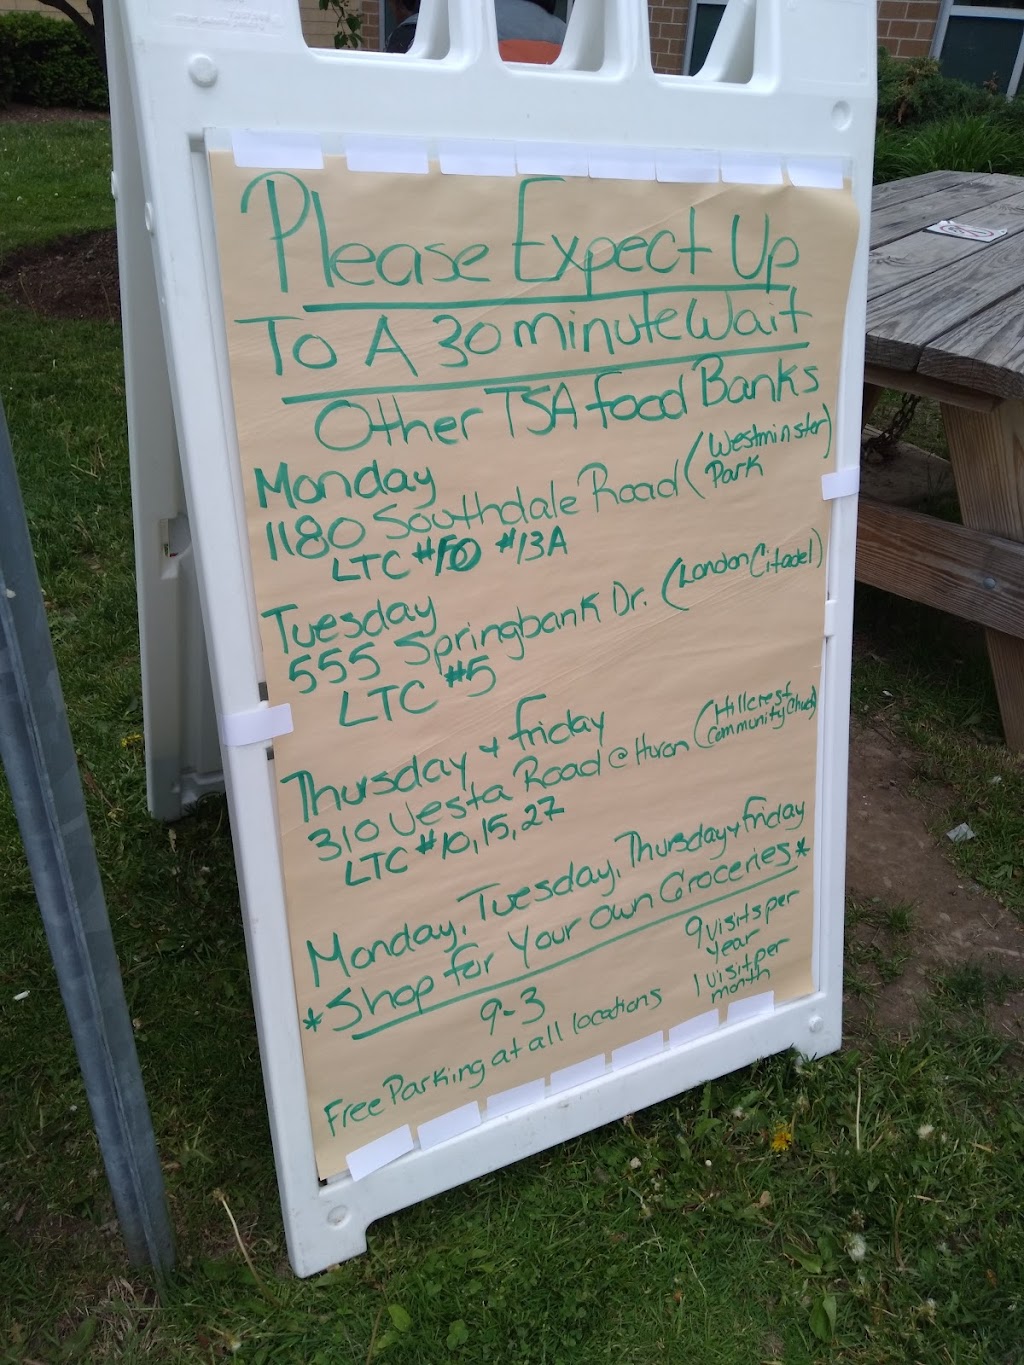 Please Expect Up
To A 30 minute Wait
Other TSA food Banks
Monday
1180 Southdale Road (Westminster Park)
LTC #13A
Tuesday
555 Springbank Dr. (London Citadel)
LTC #5
Thursday + friday
310 Vesta Road @ Huron (Hillcrest Community Church)
LTC #10, 15, 27
Monday, Tuesday, Thursday + friday
*Shop for Your own Groceries*
9-3
9 visits per year
1 visit per month
Free Parking at all locations